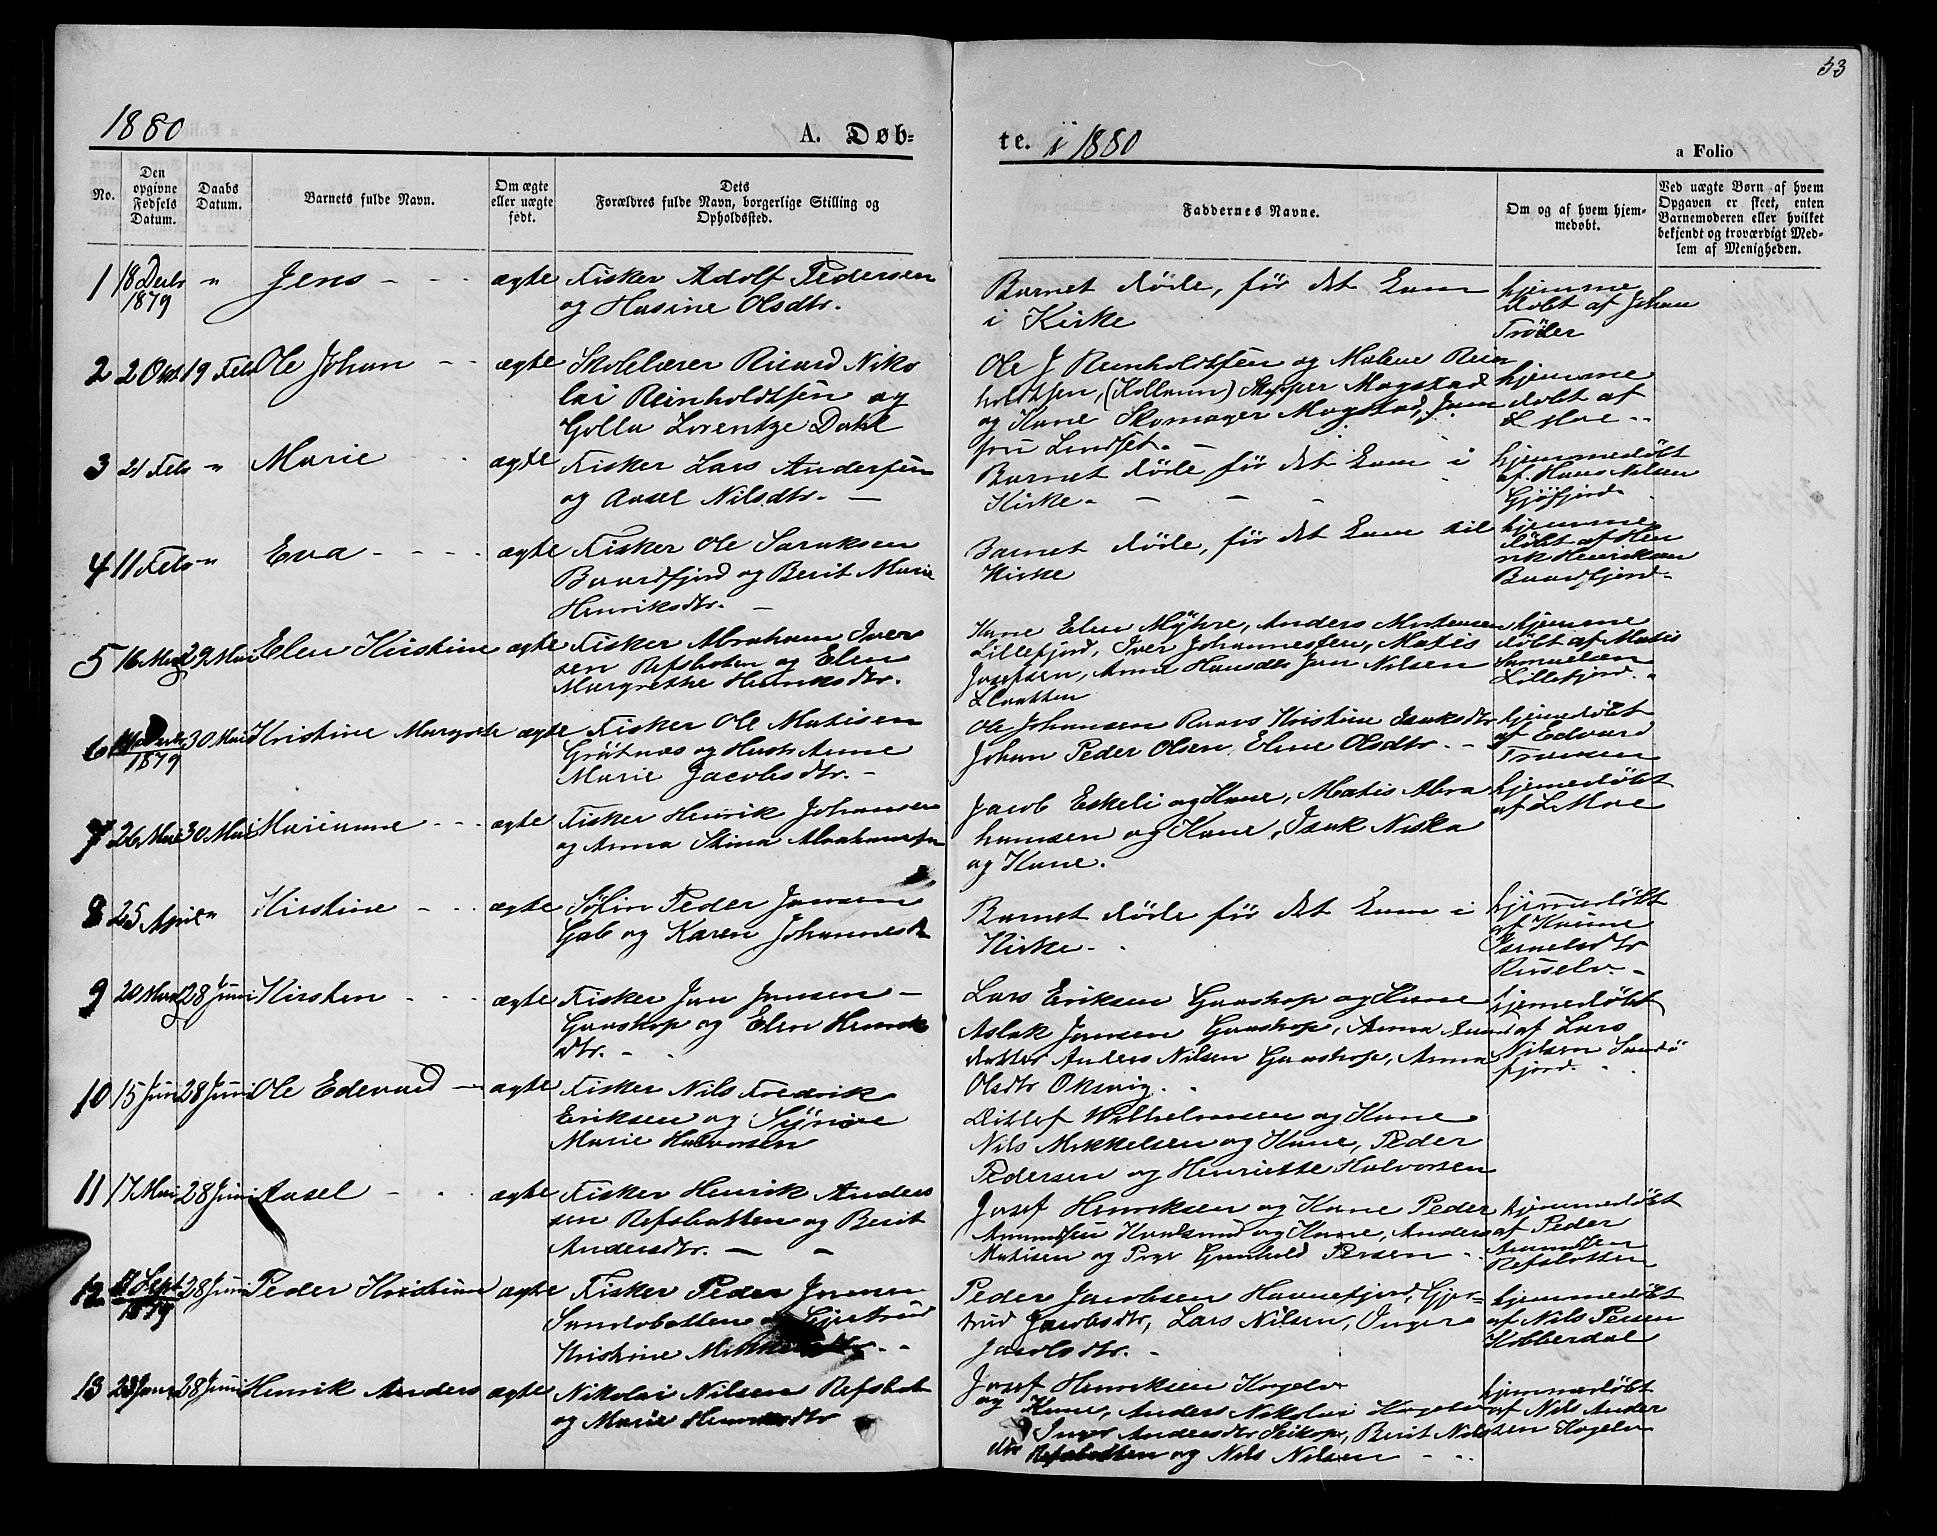 53
1880
A. Døb-
te. i 1880
a Folio
No.
Den opgivne Fødsels Datum.
Daabs Datum.
Barnets fulde Navn.
Om ægte eller uægte født.
Dets Forældres fulde Navn, borgerlige Stilling og Opholdssted.
Faddernes Navne.
Om og af hvem hjemmedøbt.
Ved uægte Børn af hvem Opgaven er skeet, enten Barnemoderen eller hvilket bekjendt og troværdigt Medlem af Menigheden.
1 18 Decbr 1879 " Jens - - - ægte Fisker Adolf Pedersen
og Hasine Olsdtr.
Barnet døde, før det kom
i Kirke
hjemme
døbt af Johan
Trøder
2 2 Okt 19 Feb Ole Johan - - ægte Skolelærer Ricard Niko
lai Reinholdtsen og
Golla Lorentze Dahl
Ole J Reinholdtsen og Malene Rein
holdtsen, Skipper Mogstad
og Kone Skomager Mogstad, Jom
fru Lindset. -
hjemme
døbt af
L Moe - -
3 21 Feb " Marie - - - ægte Fisker Lars Andersen
og Aasel Nilsdtr. -
Barnet døde før det kom i
Kirke - - -
hjemmedøbt
af Hans Nilsen
Gjøfjord
4 11 Feb " Eva - - - - ægte Fisker Ole Saraksen
Baardfjord og Berit Marie
Henriksdtr. -
Barnet døde, før det kom til
Kirke
hjemme
døbt af Hen
rik Henriksen
Baardfjord
5 16 29 Mai Elen Kirstine ægte Fisker Abraham Iver
sen Refsbotn og Elen
Margrethe Henriksdtr.
Kone Elen Myhre, Anders Mortensen
Lillefjord, Iver Johannessen, Matis
Josefsen, Anne Hansdtr Jon Nilsen
hjemme
døbt af Matis
Samuelsen
Lillefjord.
6 Decbr 1879 30 Mai Kristine Margrete ægte Fisker Ole Matisen
Grøtnæs og Hustr Anne
Marie Jacobsdtr. -
Ole Johansen Kristine Isaksdtr
Johan Peder Olsen, Eline Olsdtr. - -
hjemedøbt
af Edvard
7 26 Mai 30 Mai Marianne - - ægte Fisker Henrik Johansen
og Anna Stina Abrahamsen
Jacob Eskeli og Kone, Matis Abra
hamsen og Kone, Isak Niska
og Kone.
hjemedøbt
af L Moe
8 25 April " Kirstine - - - ægte Søfin Peder Jonsen
Gab og Karen Johannesd
Barnet døde før det kom i
Kirke -
hjemmedøbt
af
Israelsdtr
Russelv. -
9 28 Juni Kirsten - - - ægte Fisker Jon Jonsen -
Gaashop og Elen Henriks
dtr. -
Lars Eriksen Gaashop og Kone
Aslak Jonsen Gaashop, Anna
datter Anders Nilsen Gaashop, Anna
Olsdtr Oksvig.
hjemedøbt
af Lars
Nilsen
fjord.
10 15 Juni 28 Juni Ole Edevard - ægte Fisker Nils Fredrik
Eriksen og Synnøve
Marie Halvorsen
Ditlef Wilhelmsen og Kone
Nils Mikkelsen og Kone, Peder
Pedersen og Henriette Halvorsen
11 17 Mai 28 Juni Aasel - - ægte Fisker Henrik Anders
sen Refsbotten og Berit
Andersdtr. - -
Josef Henriksen og Kone Peder
Amundsen og Kone, Anders
Matisen og Gunhild Persen -
hjemmedøbt
af Peder
Amundsen
Refsbotten
12 Sept 1879 28 Juni Peder Kristian ægte Fisker Peder Jonsen
og Gjertrud
Kristine
Peder Jacobsen Havnefjord, Gjer-
trud Jacobsdtr, Lars Nilsen, Inger
Jacobsdtr. -
hjemmedøbt
af Nils Persen
Kobberdal
13 23 Janr 28 Juni Henrik Anders ægte Nikolai Nilsen Refsbot
og Marie
Josef Henriksen Kogelv
og Kone, Anders Nikolai Kogelv
Inger Andersdtr, Berit Nils
dtr Refsbotten og Nils Nilsen - -
hjemmedøbt
af Nils Ander
sen Kogelv